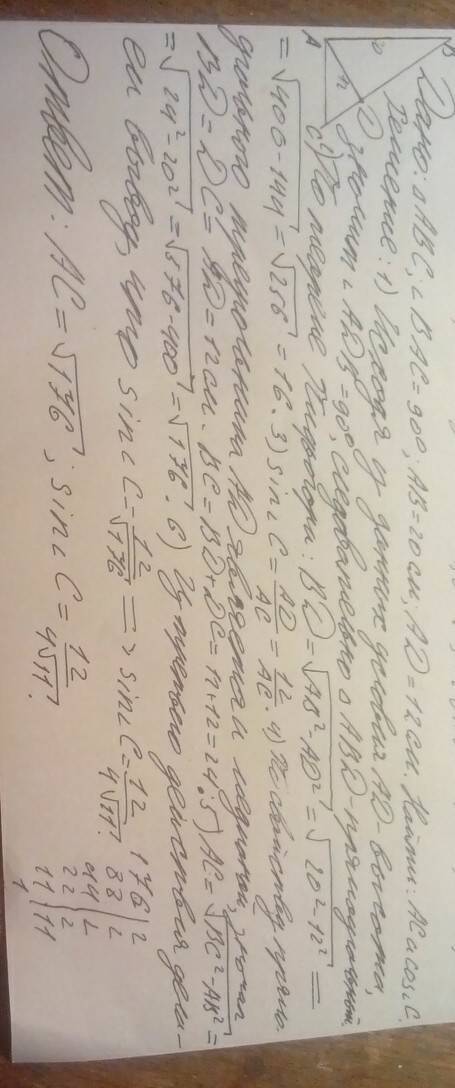 Дано: △ABC; ∠BAC=90°; AB=20см; AD=12см. Найти: AC и cos∠C.
Решение: 1) Исходя из данных условия AD-высота,
значит ∠ADB=90°, следовательно △ABD-прямоугольный.
2) По теореме Пифагора: BD=√AB²-AD²=√20²-12²=
=√400-144=√256=16. 3) sin∠C=AD/AC=12/AC 4) По свойству прямо-
угольного треугольника AD является медианой, значит
BD=DC=AD=12см. BC=BD+DC=12+12=24. 5) AC=√BC²-AB²=
=√24²-20²=√576-400=√176. 6) Из третьего действия дела-
ем вывод, что sin∠C=12/√176 => sin∠C=12/4√11.
Ответ: AC=√176; sin∠C=12/4√11.
176|2
88|2
44|2
22|2
11|11
1
B
20
A
12
D
C